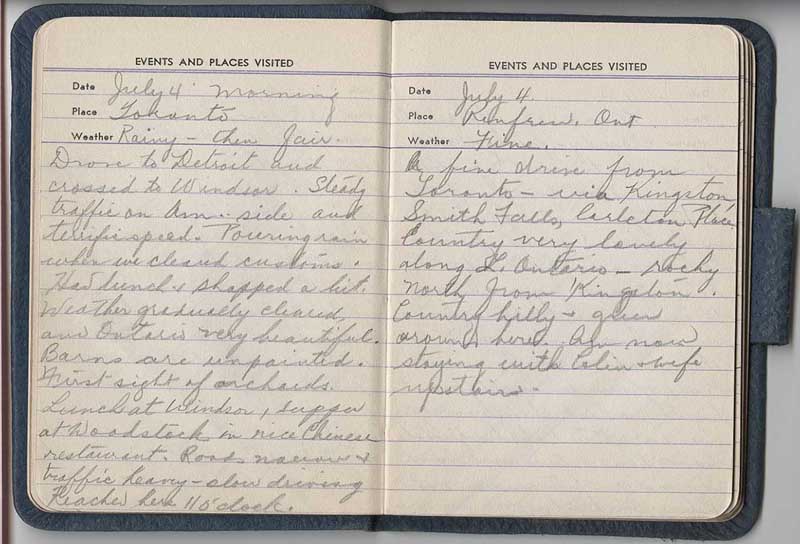 EVENTS AND PLACES VISITED
Date July 4 Morning
Place Toronto
Weather Rainy - then fair.
Drove to Detroit and
crossed to Windsor. Steady
traffic on Am. side and
terrific speed. Pouring rain
when we cleared customs.
Had lunch & shopped a bit.
Weather gradually cleared,
and Ontario very beautiful.
Barns are unpainted.
First sight of orchards.
Lunch at Windsor, supper
at Woodstock in nice Chinese
restaurant. Roads narrow &
traffic heavy - slow driving
Reached here 11 o'clock.
EVENTS AND PLACES VISITED
Date July 4.
Place Renfrew. Ont
Weather Fine.
A fine drive from
Toronto - via Kingston,
Smith Falls, Carleton Place.
Country very lovely
along L. Ontario - rocky
north from Kingston.
Country hilly & green
around here. Am now
staying with Colin & wife
upstairs.